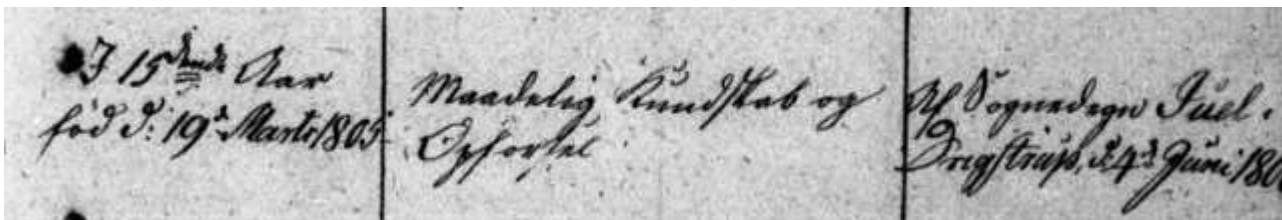 I 15de Aar
fød d: 19de Marts 1805
Maadelig Kundskab og
Opførsel
Af Sognedegn Juel i
d. 4de Juni 180